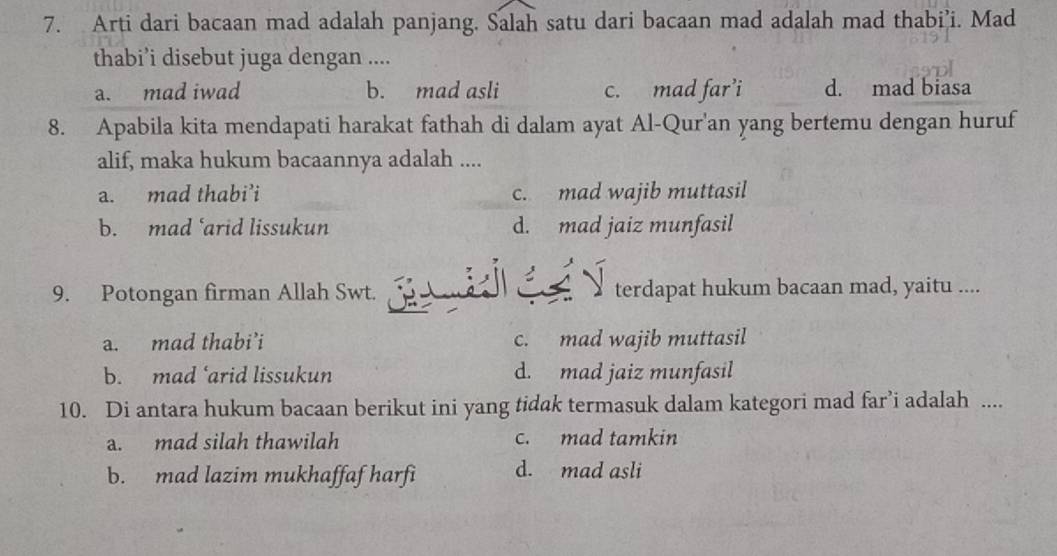 7. Arti dari bacaan mad adalah panjang. Salah satu dari bacaan mad adalah mad thabi'i. Mad
thabi'i disebut juga dengan ....
a. mad iwad b. mad asli c. mad far'i d. mad biasa
8. Apabila kita mendapati harakat fathah di dalam ayat Al-Qur'an yang bertemu dengan huruf
alif, maka hukum bacaannya adalah ....
a. mad thabi'i c. mad wajib muttasil
b. mad 'arid lissukun d. mad jaiz munfasil
9. Potongan firman Allah Swt. لَا يُحِبُّ الْمُفْسِدِيْنَ terdapat hukum bacaan mad, yaitu ....
a. mad thabi'i c. mad wajib muttasil
b. mad 'arid lissukun d. mad jaiz munfasil
10. Di antara hukum bacaan berikut ini yang tidak termasuk dalam kategori mad far'i adalah ....
a. mad silah thawilah c. mad tamkin
b. mad lazim mukhaffaf harfi d. mad asli